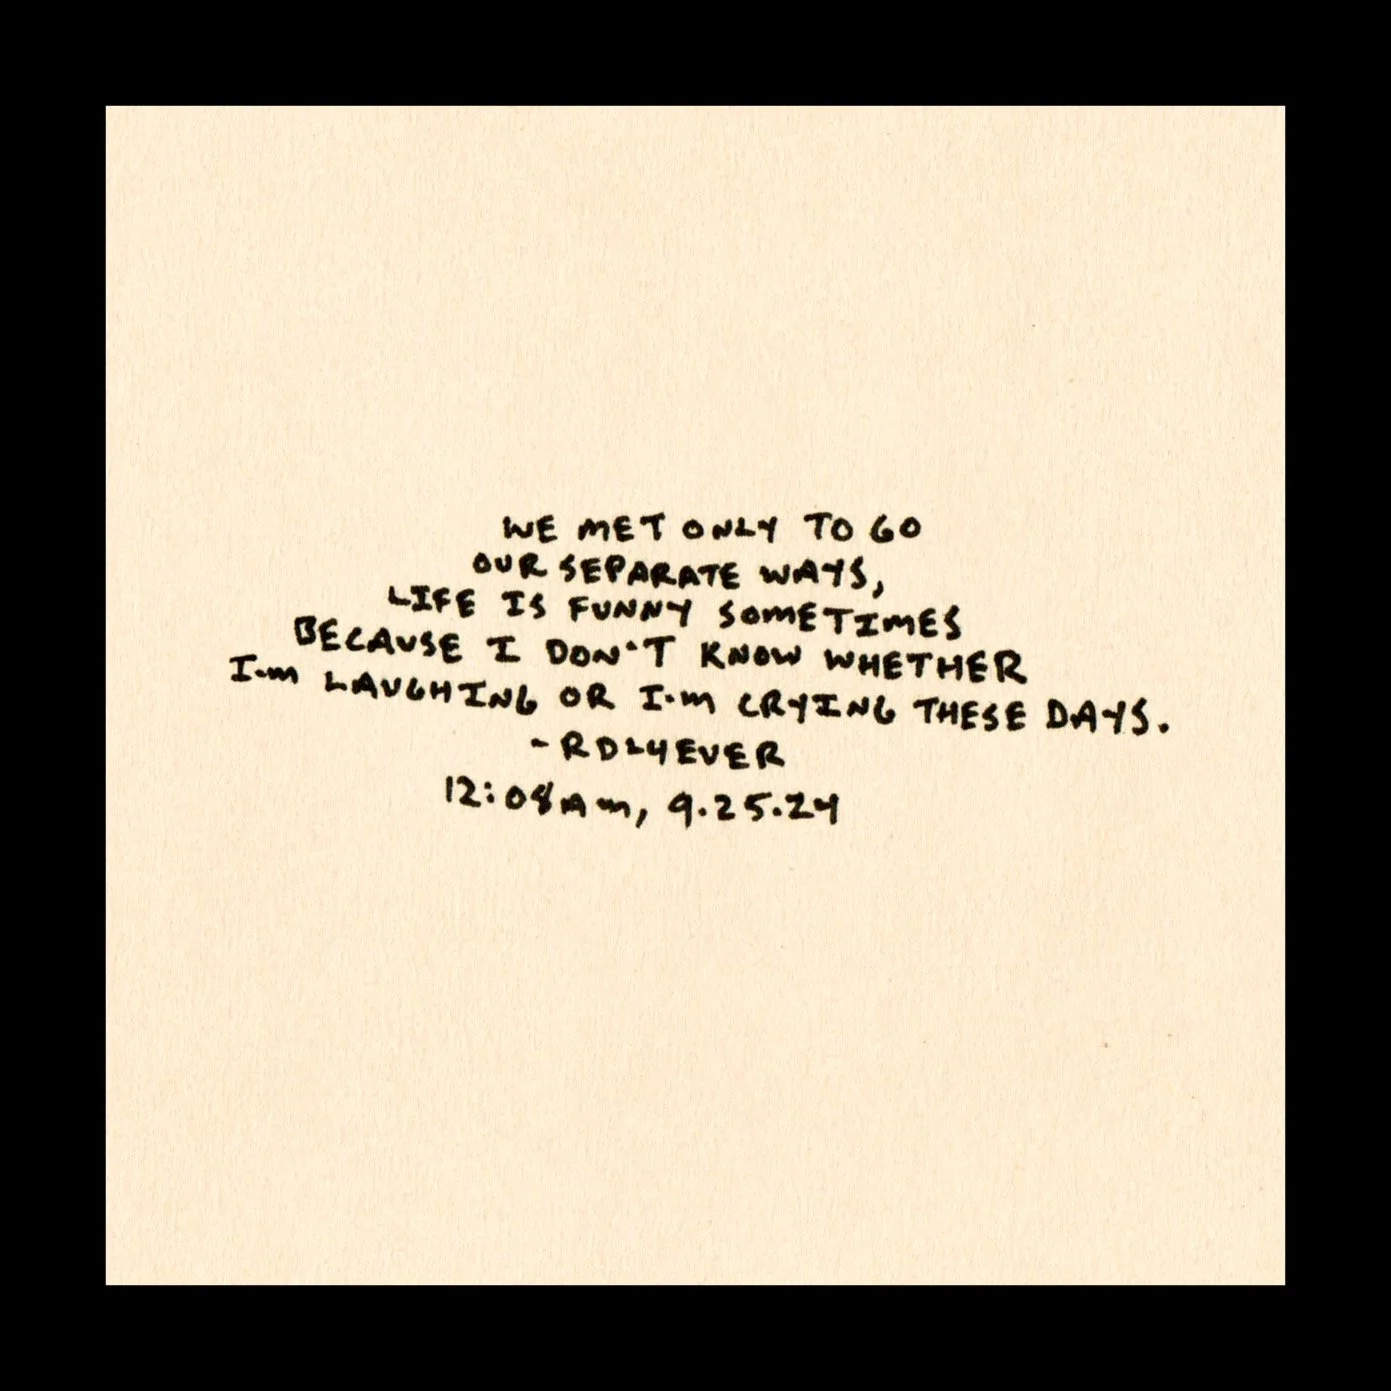 WE MET ONLY TO GO
OUR SEPARATE WAYS,
LIFE IS FUNNY SOMETIMES
BECAUSE I DON'T KNOW WHETHER
I'm LAUGHING OR I'm CRYING THESE DAYS.
-RDL4EVER
12:08Am, 9.25.24